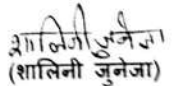 शालिनी जुनेजा
(शालिनी जुनेजा)